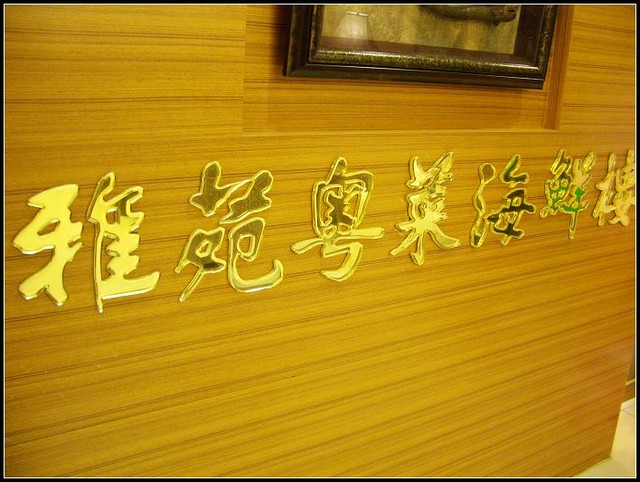 雅苑粤菜海鮮樓